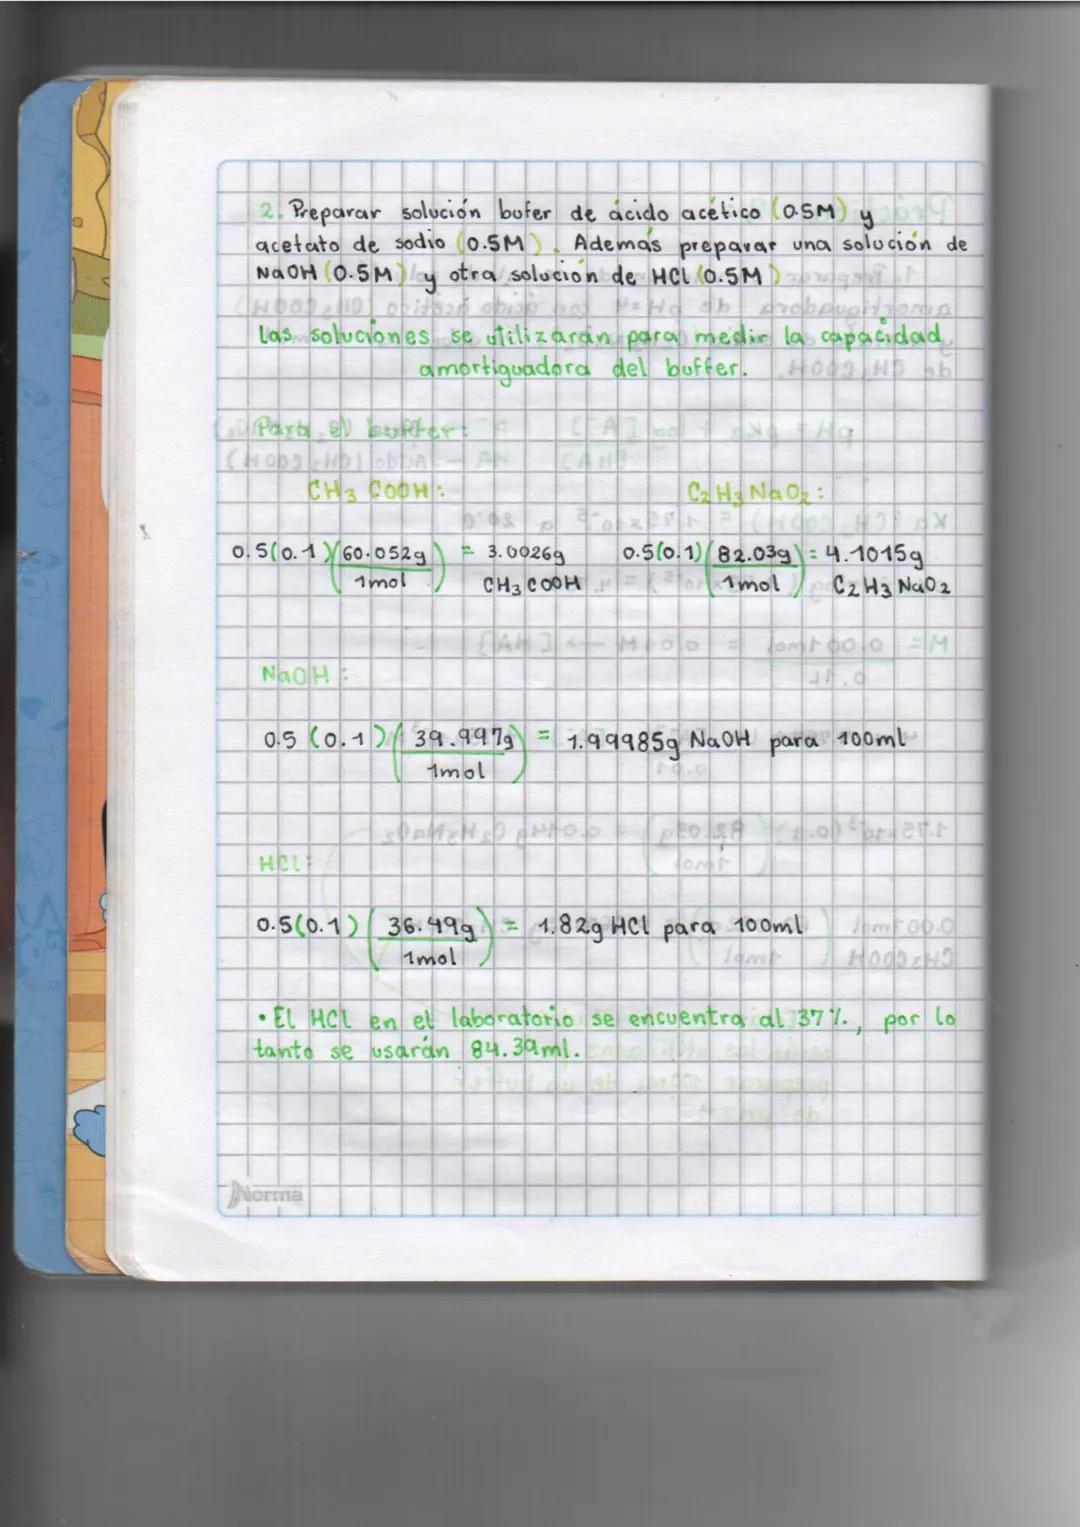 2. Preparar solución bufer de ácido acético (0.5M) y
acetato de sodio (0.5M). Además preparar una solución de
NaOH (0.5M) y otra solución de HCl (0.5M)
Las soluciones se utilizarán para medir la capacidad
amortiguadora del buffer.
Para el buffer:
CH3 COOH:
C2 H3 Na O2:
0.5(0.1)(60.052g/1mol) = 3.0026g CH3 COOH
0.5(0.1)(82.03g/1mol) = 4.1015g C2 H3 NaO2
NaOH:
0.5 (0.1)(39.997g/1mol) = 1.99985g NaOH para 100ml
HCl:
0.5(0.1)(36.49g/1mol) = 1.82g HCl para 100ml
• El HCl en el laboratorio se encuentra al 37%., por lo
tanto se usarán 84.39ml.
Norma